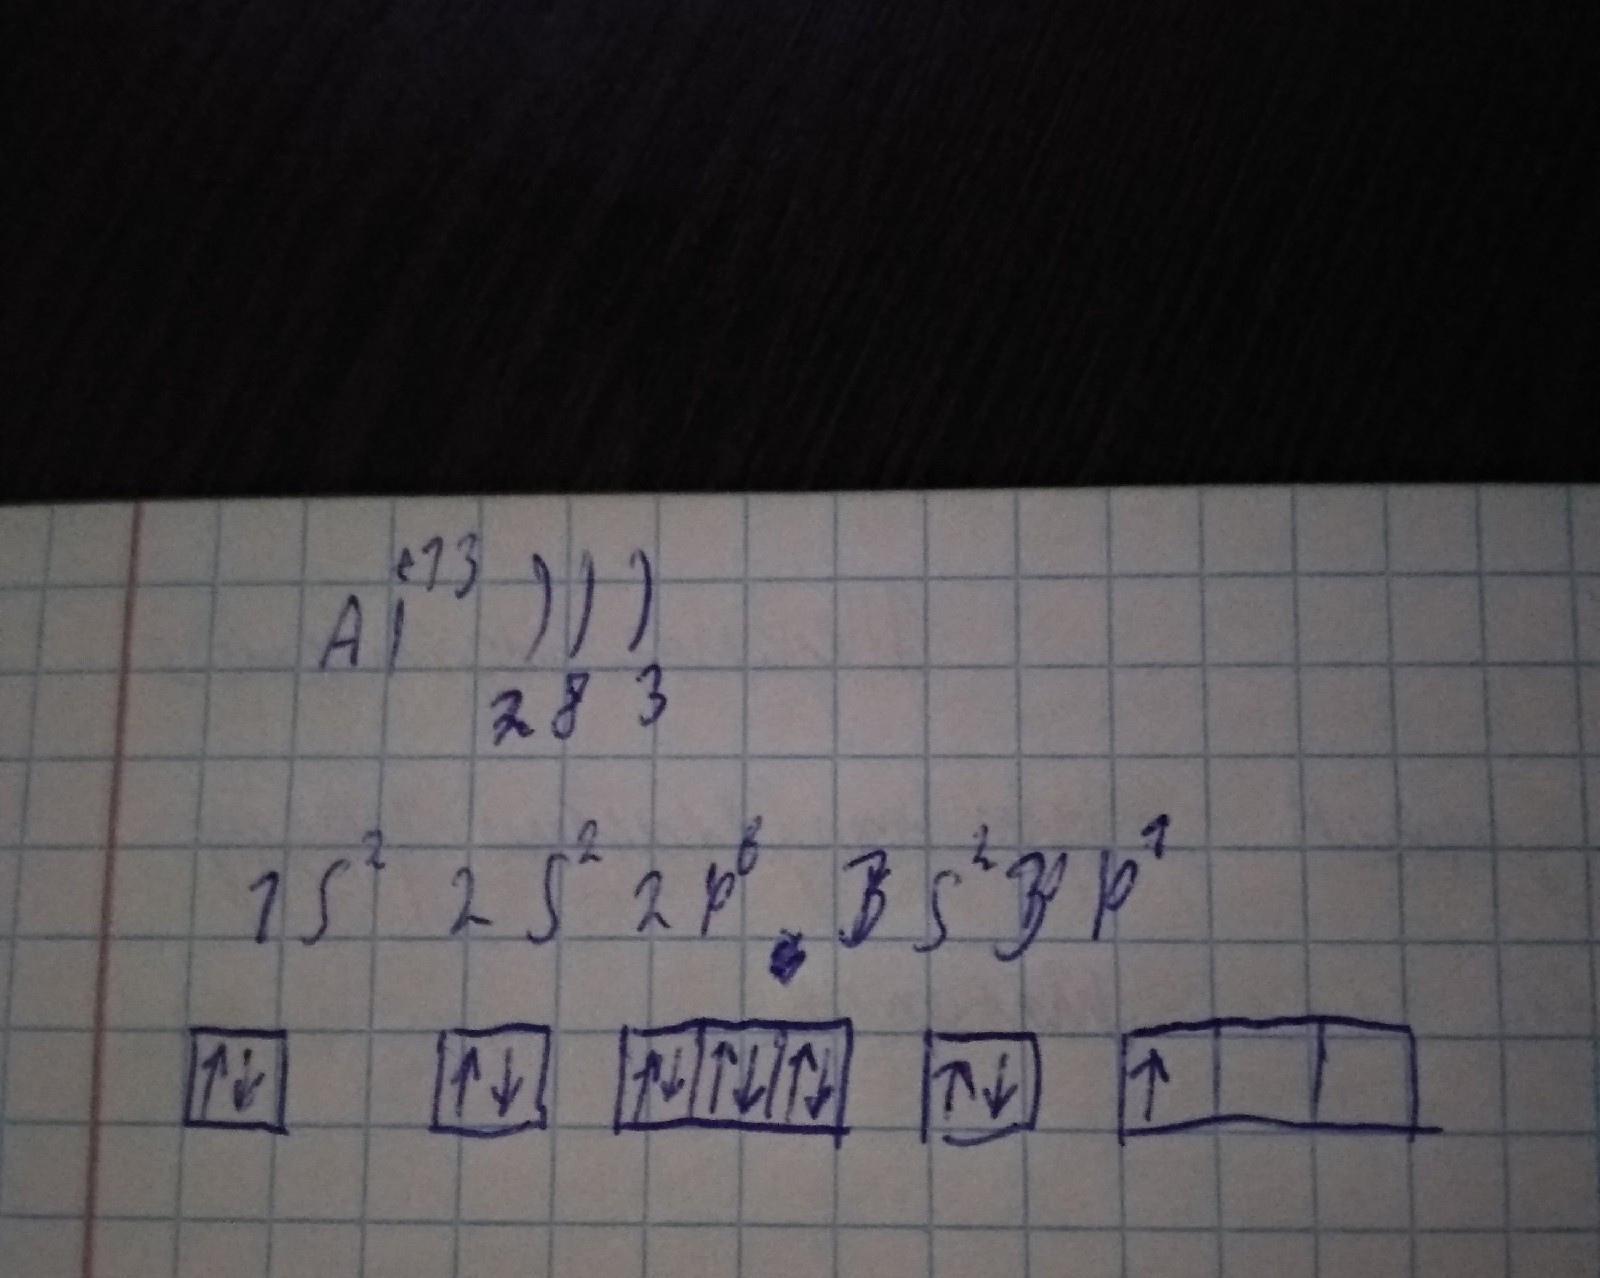 Al⁺¹³ ) ) )
2 8 3
1s² 2s² 2p⁶ 3s² 3p¹
↑↓ ↑↓ ↑↓ ↑↓ ↑↓ ↑↓ ↑